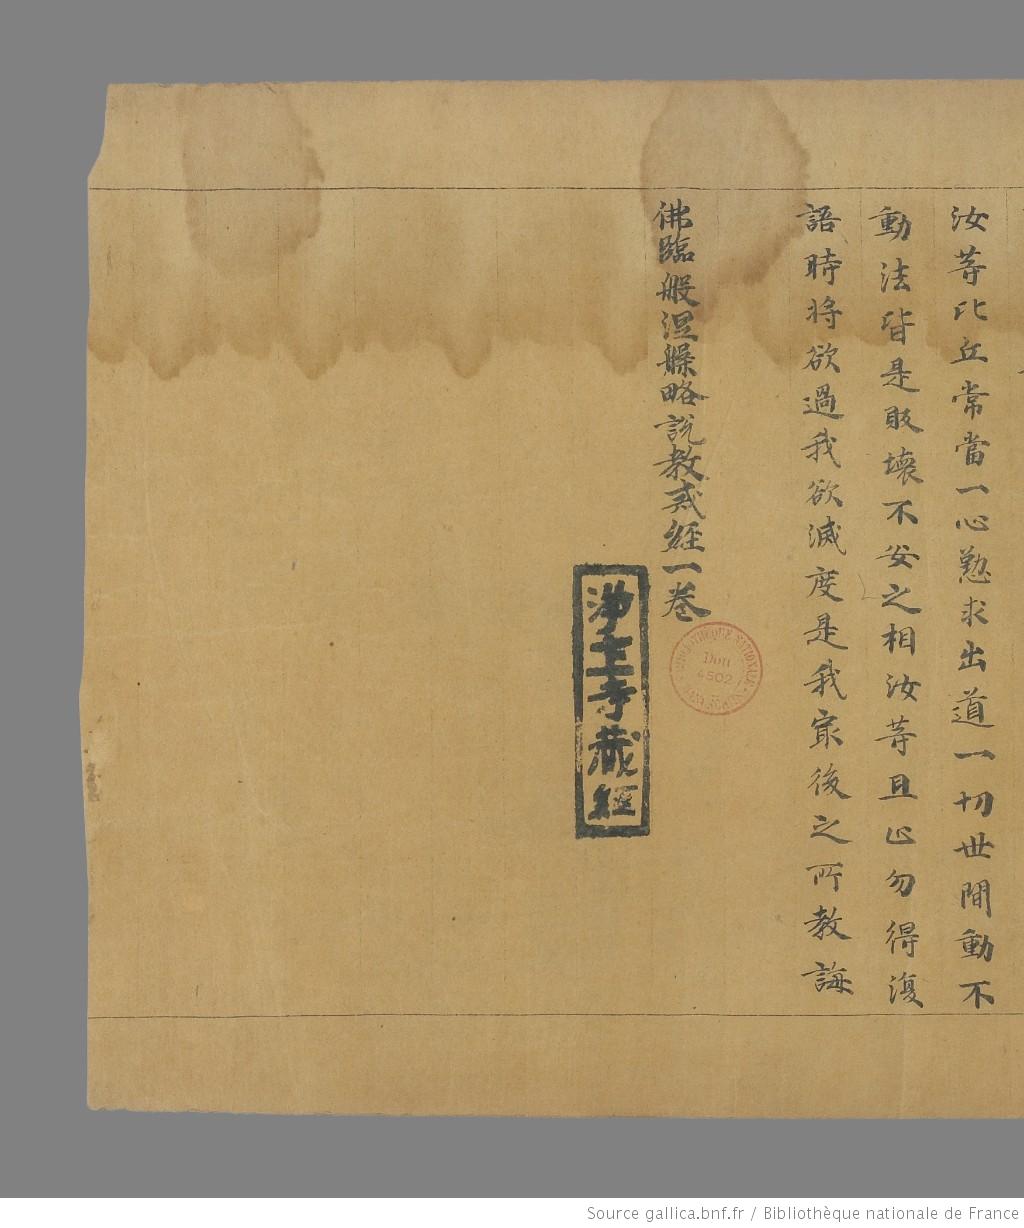 汝等比丘常當一心懃求出道一切世間動不
動法皆是敗壞不安之相汝等且止勿得復
語時將欲過我欲滅度是我冣後之所教誨
佛臨般涅槃略說教戒經一卷
淨土寺藏經
BIBLIOTHÈQUE NATIONALE
Don
4502
Source gallica.bnf.fr / Bibliothèque nationale de France